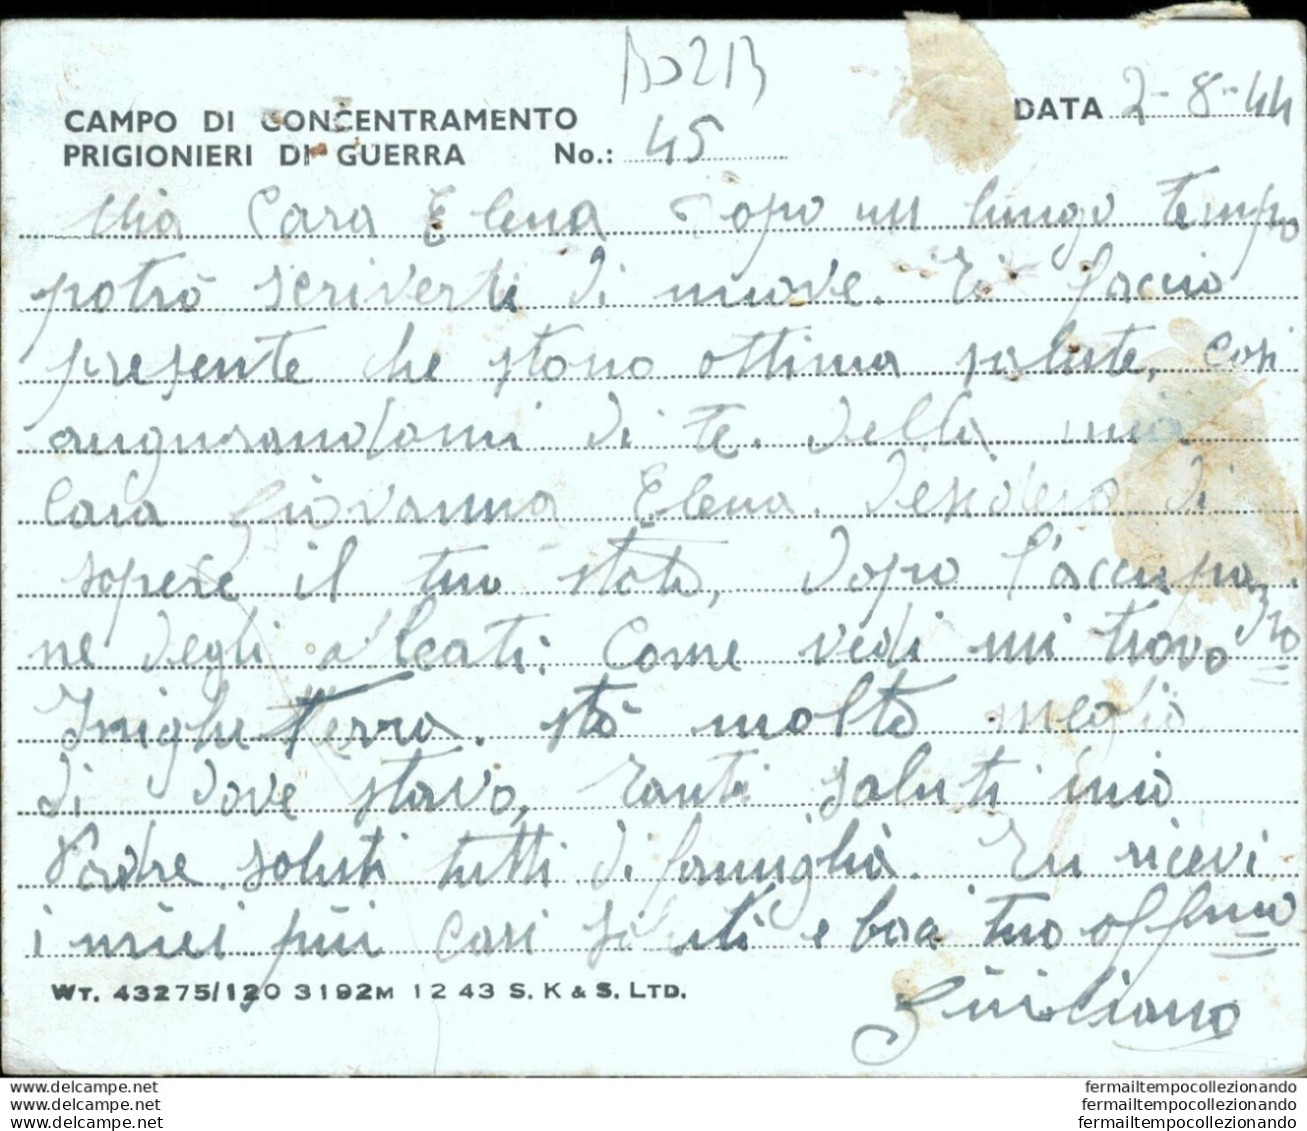 CAMPO DI CONCENTRAMENTO
PRIGIONIERI DI GUERRA No.: 45
DATA 2-8-44
Mia Cara Elena Dopo un lungo tempo
potrò scriverti di nuove. Ti faccio
presente che stono ottima salute, così
angurandomi di te. della mia
Cara Giovanna Elena. desidero di
sapere il tuo stato, dopo l'accupazio
ne degli alleati: Come vedi mi trovo
Inighilterra. stò molto meglio
di dove stavo, Tanti saluti mio
Padre. saluti tutti di famiglia. Tu ricevi
i miei più cari saluti e baci tuo aff.mo
Giuliano
WT. 43275/120 3192M 12 43 S. K & S. LTD.
www.delcampe.net
www.delcampe.net
www.delcampe.net
fermailtempocollezionando
fermailtempocollezionando
fermailtempocollezionando